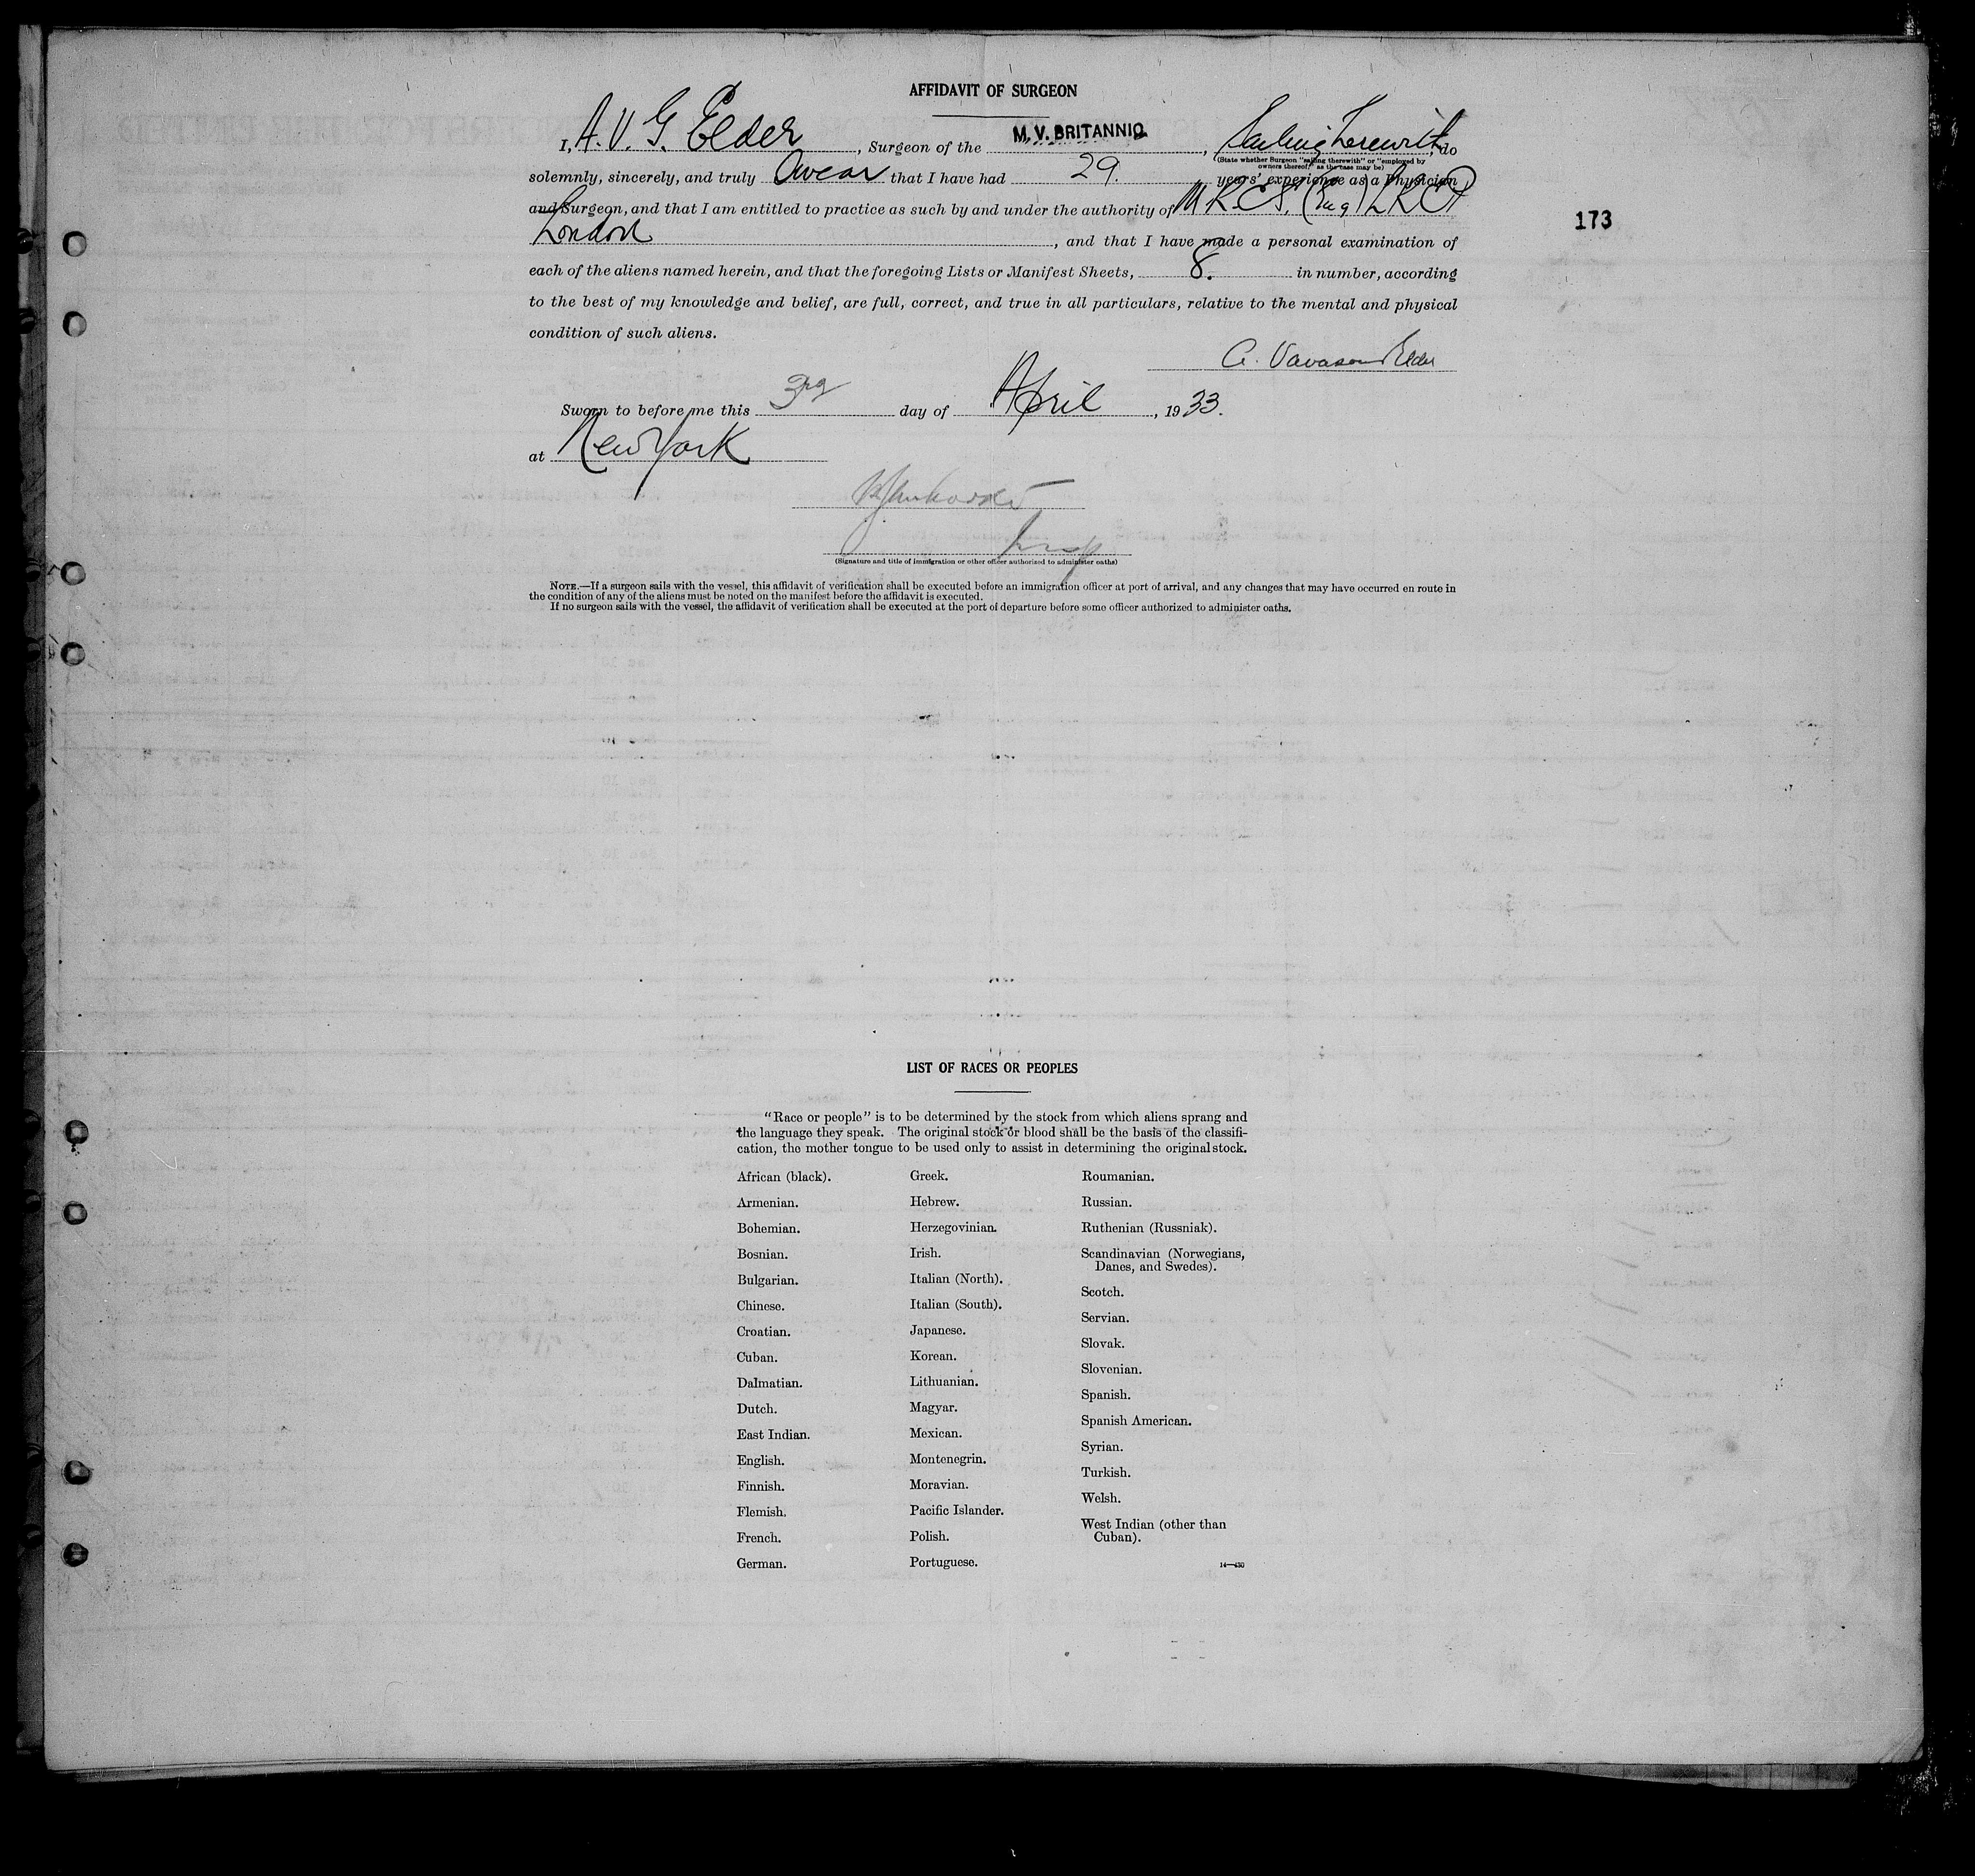 AFFIDAVIT OF SURGEON
I, A. V. G. Elder, Surgeon of the M.V. BRITANNIC, Sailing therewith, do
(State whether Surgeon "sailing therewith" or "employed by
owners thereof," as the case may be)
solemnly, sincerely, and truly Swear that I have had 29. years' experience as a Physician
and Surgeon, and that I am entitled to practice as such by and under the authority of M R C S. (Eng) L R C P
London, and that I have made a personal examination of
173
each of the aliens named herein, and that the foregoing Lists or Manifest Sheets, 8. in number, according
to the best of my knowledge and belief, are full, correct, and true in all particulars, relative to the mental and physical
condition of such aliens.
A. Vavasour Elder
Sworn to before me this 3rd day of April, 1933.
at New York
Insp
(Signature and title of immigration or other officer authorized to administer oaths)
NOTE.—If a surgeon sails with the vessel, this affidavit of verification shall be executed before an immigration officer at port of arrival, and any changes that may have occurred en route in
the condition of any of the aliens must be noted on the manifest before the affidavit is executed.
If no surgeon sails with the vessel, the affidavit of verification shall be executed at the port of departure before some officer authorized to administer oaths.
LIST OF RACES OR PEOPLES
"Race or people" is to be determined by the stock from which aliens sprang and
the language they speak. The original stock or blood shall be the basis of the classifi-
cation, the mother tongue to be used only to assist in determining the original stock.
African (black).
Armenian.
Bohemian.
Bosnian.
Bulgarian.
Chinese.
Croatian.
Cuban.
Dalmatian.
Dutch.
East Indian.
English.
Finnish.
Flemish.
French.
German.
Greek.
Hebrew.
Herzegovinian.
Irish.
Italian (North).
Italian (South).
Japanese.
Korean.
Lithuanian.
Magyar.
Mexican.
Montenegrin.
Moravian.
Pacific Islander.
Polish.
Portuguese.
Roumanian.
Russian.
Ruthenian (Russniak).
Scandinavian (Norwegians,
Danes, and Swedes).
Scotch.
Servian.
Slovak.
Slovenian.
Spanish.
Spanish American.
Syrian.
Turkish.
Welsh.
West Indian (other than
Cuban).
14—430